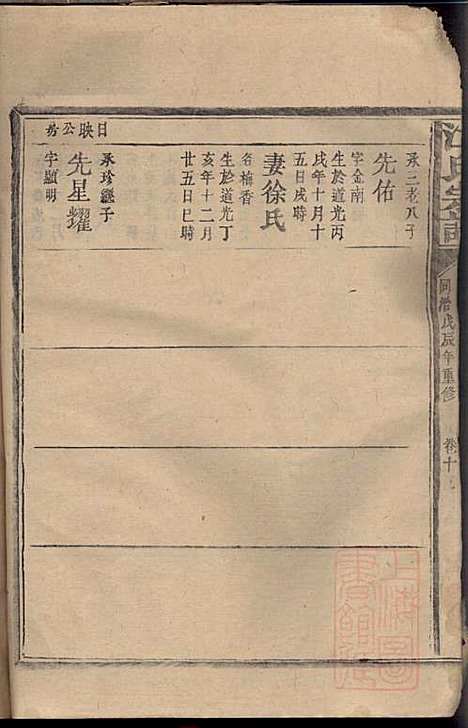 日映公房
承三老八子
先佑
字金南
生於道光丙
戌年十月十
五日戌時
妻徐氏
名柚香
生於道光丁
亥年十二月
廿五日巳時
承珍繼子
先星耀
字顯明
氏宗譜
同治戊辰年重修
卷十
上海圖
書館藏